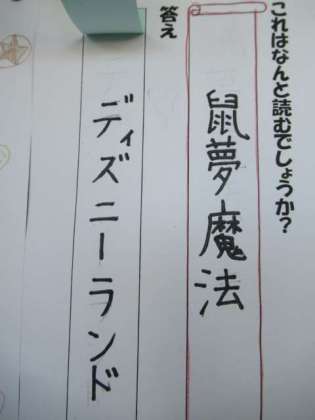 これはなんと読むでしょうか?
鼠夢魔法
答え
ディズニーランド